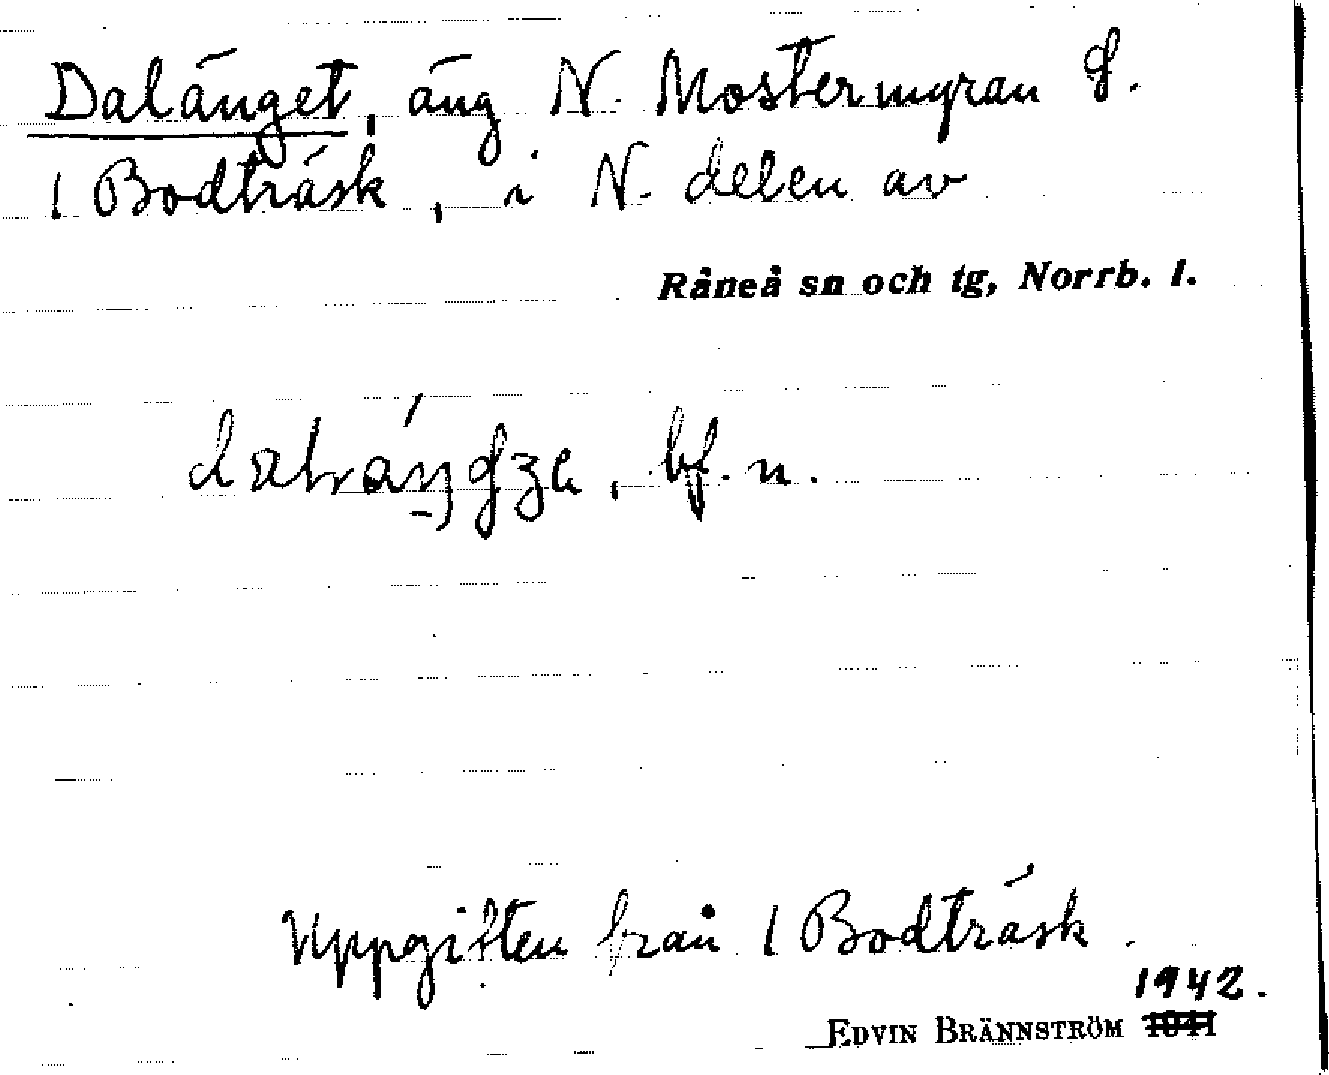 Dalänget, äng N. Mostermyran f.
1 Bodträsk, i N. delen av
Råneå sn och tg, Norrb. l.
bf. n.
Uppgiften från 1 Bodträsk.
1942.
EDVIN BRÄNNSTRÖM 1941